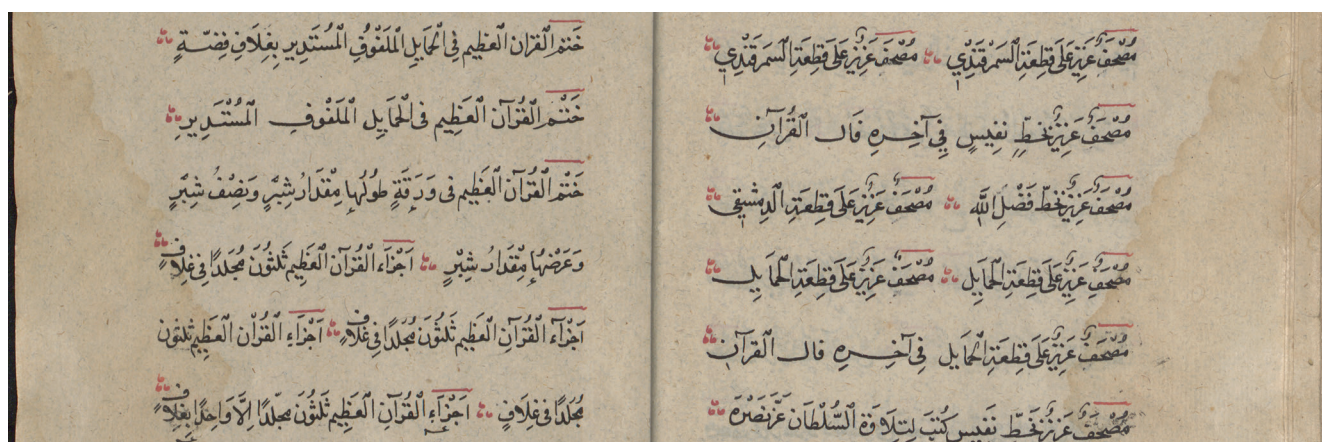 مُصْحَفٌ عَزِيزٌ عَلَى قِطْعَةِ السَّمَرْقَنْدِي مُصْحَفٌ عَزِيزٌ عَلَى قِطْعَةِ السَّمَرْقَنْدِي
مُصْحَفٌ عَزِيزٌ بِخَطٍّ نَفِيسٍ فِي آخِرِهِ فَال الْقُرْآنِ
مُصْحَفٌ عَزِيزٌ بِخَطِّ فَضْلِ اللَّه مُصْحَفٌ عَزِيزٌ عَلَى قِطْعَةِ الدِّمَشْقِي
مُصْحَفٌ عَزِيزٌ عَلَى قِطْعَةِ الْحَمَايِل مُصْحَفٌ عَزِيزٌ عَلَى قِطْعَةِ الْحَمَايِل
مُصْحَفٌ عَزِيزٌ عَلَى قِطْعَةِ الْحَمَايِل فِي آخِرِهِ فَال الْقُرْآنِ
مُصْحَفٌ عَزِيزٌ بِخَطٍّ نَفِيسٍ كُتِبَ لِتِلَاوَةِ السُّلْطَان عَزَّ نَصْرُهُ
خَتْمُ الْقُرْآنِ الْعَظِيمِ فِي الْحَمَايِلِ الْمَلْفُوفِ الْمُسْتَدِيرِ بِغِلَافِ فِضَّةٍ
خَتْمُ الْقُرْآنِ الْعَظِيمِ فِي الْحَمَايِلِ الْمَلْفُوفِ الْمُسْتَدِيرِ
خَتْمُ الْقُرْآنِ الْعَظِيمِ فِي وَرَقَةٍ طُولُهَا مِقْدَارُ شِبْرٍ وَنِصْفُ شِبْرٍ
وَعَرْضُهَا مِقْدَارُ شِبْرٍ أَجْزَاءُ الْقُرْآنِ الْعَظِيمِ ثَلٰثُونَ مُجَلَّدًا فِي غِلَافٍ
أَجْزَاءُ الْقُرْآنِ الْعَظِيمِ ثَلٰثُونَ مُجَلَّدًا فِي غِلَافٍ أَجْزَاءُ الْقُرْآنِ الْعَظِيمِ ثَلٰثُونَ
مُجَلَّدًا فِي غِلَافٍ أَجْزَاءُ الْقُرْآنِ الْعَظِيمِ ثَلٰثُونَ مُجَلَّدًا إِلَّا وَاحِدًا بِغِلَافٍ